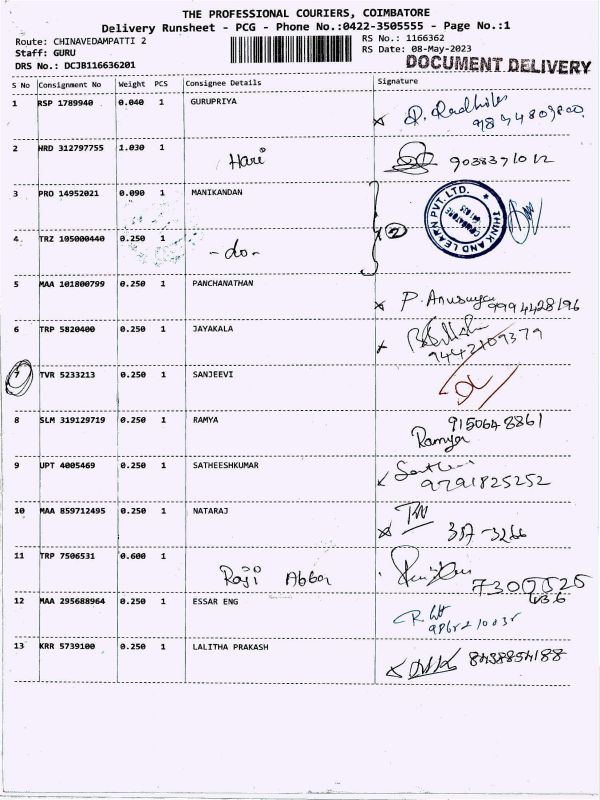 THE PROFESSIONAL COURIERS, COIMBATORE
Delivery Runsheet - PCG - Phone No.:0422-3505555 - Page No.:1
Route: CHINAVEDAMPATTI 2 RS No.: 1166362
Staff: GURU RS Date: 08-May-2023
DRS No.: DCJB116636201 DOCUMENT DELIVERY
S No Consignment No Weight PCS Consignee Details Signature
1 RSP 1789940 0.040 1 GURUPRIYA
2 HRD 312797755 1.030 1 Hari 9038371012
3 PRO 14952021 0.090 1 MANIKANDAN
THINK AND LEARN PVT. LTD.
4 TRZ 105000440 0.250 1 -do- 2
5 MAA 101800799 0.250 1 PANCHANATHAN P. Anusuya 9994428196
6 TRP 5820400 0.250 1 JAYAKALA
9442109379
7 TVR 5233213 0.250 1 SANJEEVI
8 SLM 319129719 0.250 1 RAMYA 9150648861
Ramya
9 UPT 4005469 0.250 1 SATHEESHKUMAR
9791825252
10 MAA 859712495 0.250 1 NATARAJ
11 TRP 7506531 0.600 1 Raji Abbor
12 MAA 295688964 0.250 1 ESSAR ENG
13 KRR 5739100 0.250 1 LALITHA PRAKASH 8438854188